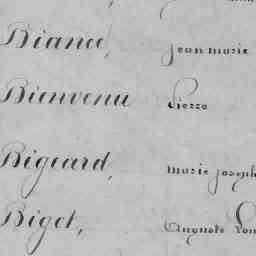 Biance, jean marie
Bienvenu Pierre
Bigeard, marie joseph
Biget, Auguste